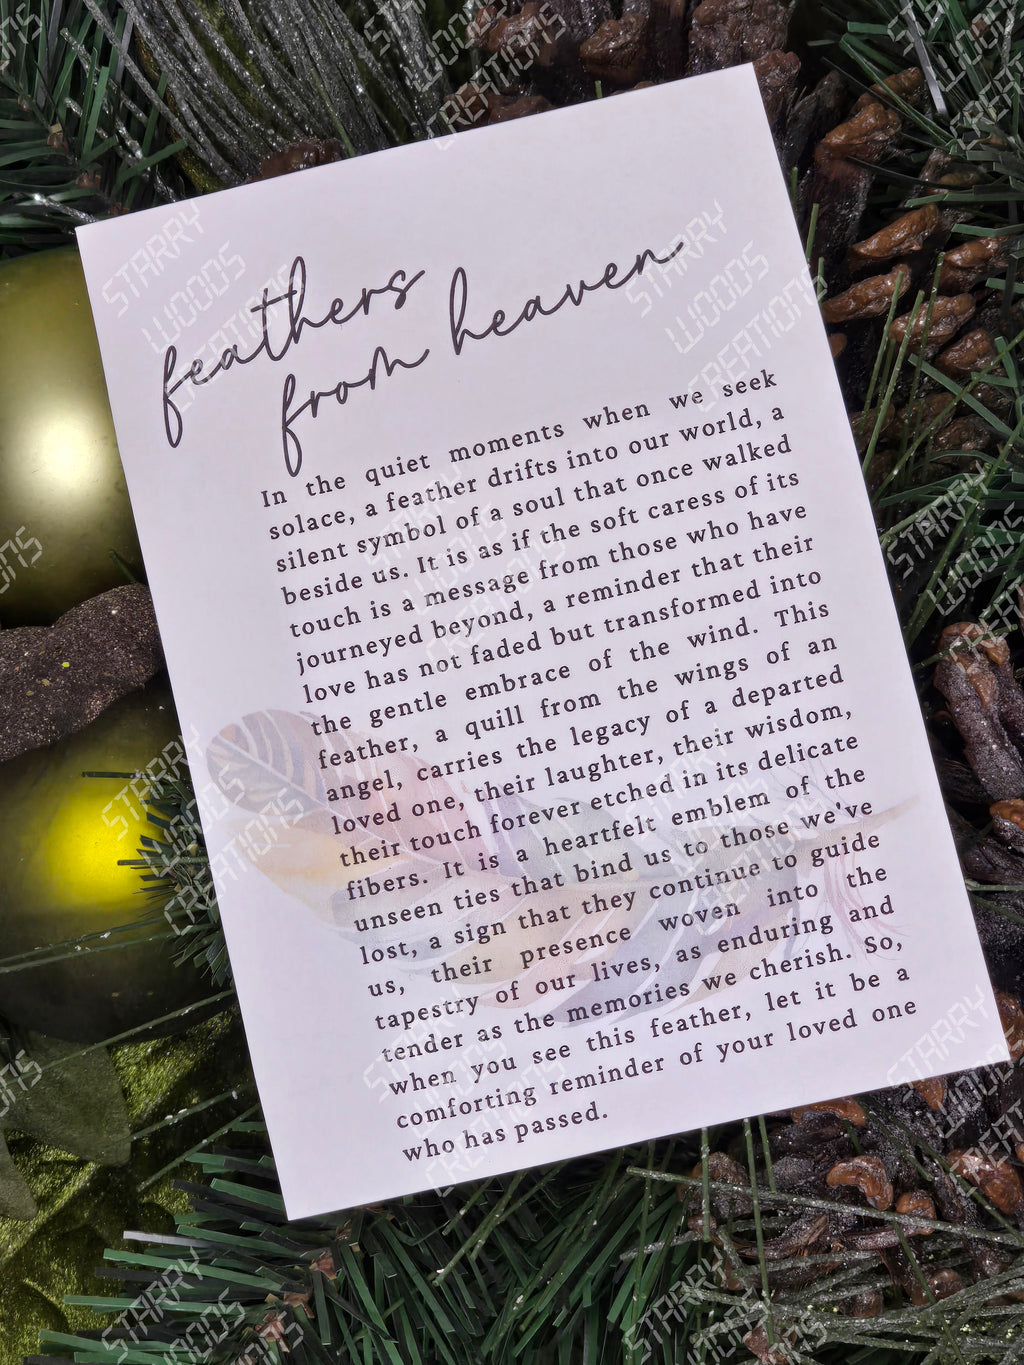 feathers
from heaven
In the quiet moments when we seek
solace, a feather drifts into our world, a
silent symbol of a soul that once walked
beside us. It is as if the soft caress of its
touch is a message from those who have
journeyed beyond, a reminder that their
love has not faded but transformed into
the gentle embrace of the wind. This
feather, a quill from the wings of an
angel, carries the legacy of a departed
loved one, their laughter, their wisdom,
their touch forever etched in its delicate
fibers. It is a heartfelt emblem of the
unseen ties that bind us to those we've
lost, a sign that they continue to guide
us, their presence woven into the
tapestry of our lives, as enduring and
tender as the memories we cherish. So,
when you see this feather, let it be a
comforting reminder of your loved one
who has passed.
STARRY
WOODS
CREATIONS